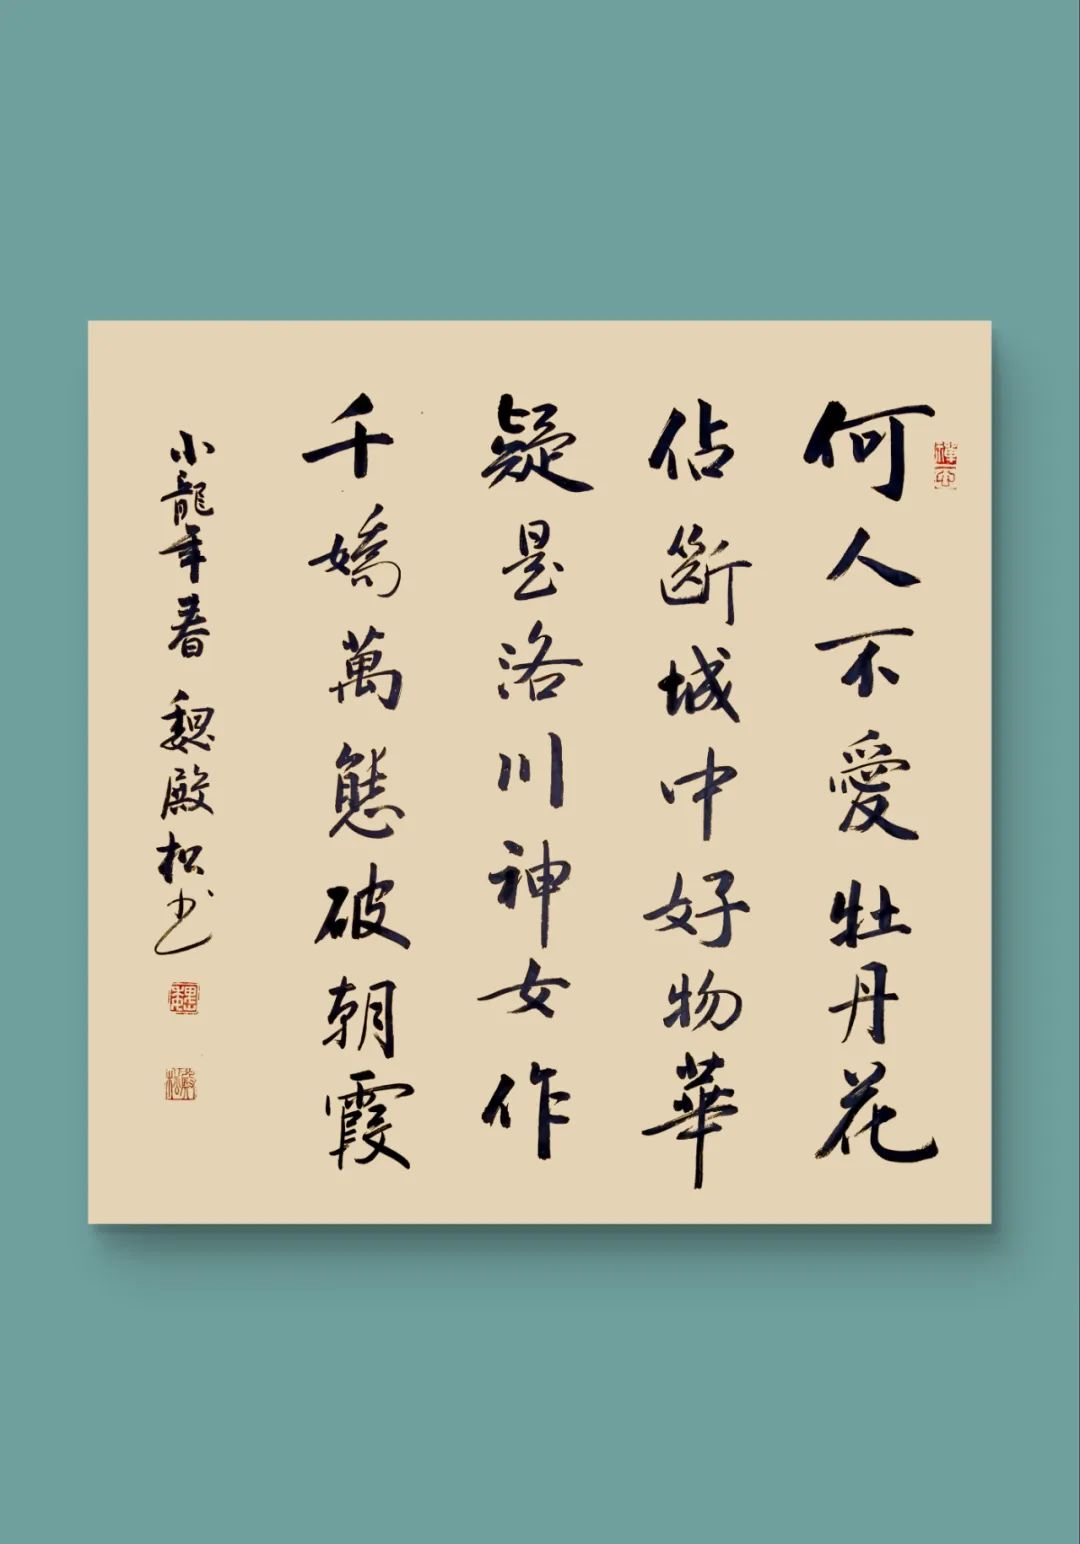 何人不愛牡丹花
佔斷城中好物華
疑是洛川神女作
千嬌萬態破朝霞
小龍年春 魏殿松书
魏
殿松